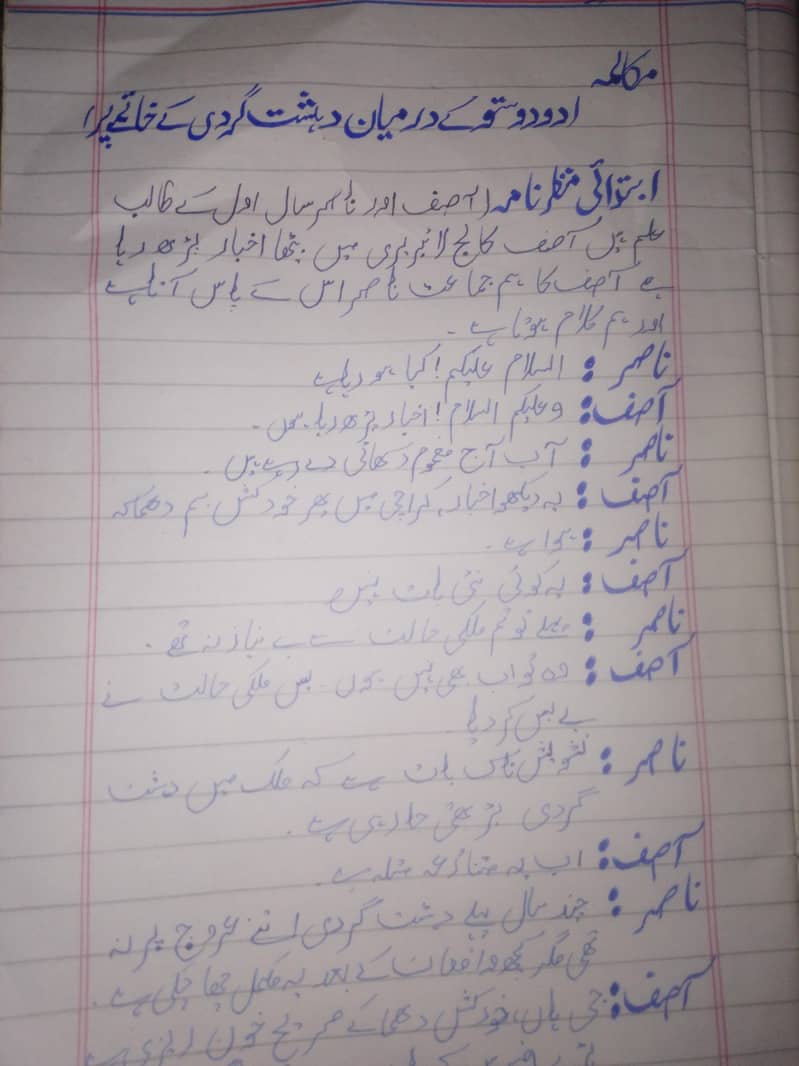 مکالمہ
(دو دوستو کے درمیان دہشت گردی کے خاتمے پر)
ابتدائی منظر نامہ (آصف اور ناصر سال اول کے طالب
علم ہیں آصف کالج لائبریری میں بیٹھا اخبار پڑھ رہا
ہے آصف کا ہم جماعت ناصر اس کے پاس آتا ہے
اور ہم کلام ہوتا ہے۔
ناصر : السلام علیکم! کیا ہو رہا ہے
آصف : وعلیکم السلام! اخبار پڑھ رہا ہوں۔
ناصر : آپ آج مغموم دکھائی دے رہے ہیں۔
آصف : یہ دیکھو اخبار، کراچی میں پھر خودکش بم دھماکہ
ناصر : ہوا ہے۔
آصف : یہ کوئی نئی بات نہیں
ناصر : پہلے تو تم ملکی حالت سے بے نیاز نہ تھے۔
آصف : وہ تو اب بھی نہیں ہوں۔ بس ملکی حالت نے
بے بس کر دیا
ناصر : تشویش ناک بات ہے کہ ملک میں دہشت
گردی بڑھتی جا رہی ہے۔
آصف : اب یہ متنازعہ مسئلہ ہے۔
ناصر : چند سال پہلے دہشت گردی اپنے عروج پر نہ
تھی مگر کچھ واقعات کے بعد یہ مکمل چھا چکی ہے۔
آصف : جی ہاں، خودکش دھماکے صریح خون ریزی ہے